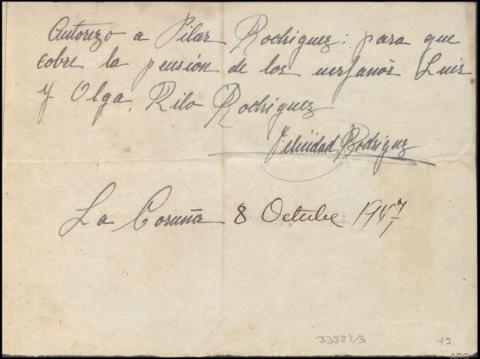 Autorizo a Pilar Rodriguez: para que
cobre la pensión de los uerfanos Luis
y Olga, Rilo Rodriguez
Felicidad Rodriguez
La Coruña 8 Octubre 1947
33881/3
45